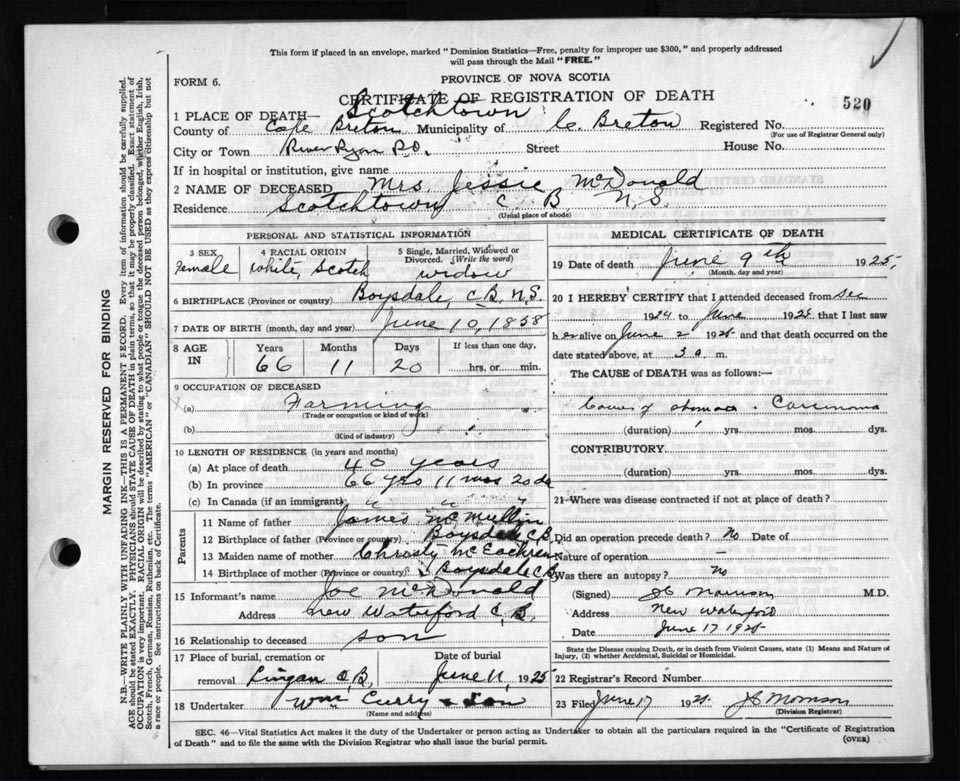 This form if placed in an envelope, marked "Dominion Statistics—Free, penalty for improper use $300," and properly addressed
will pass through the Mail "FREE."
FORM 6.
PROVINCE OF NOVA SCOTIA
CERTIFICATE OF REGISTRATION OF DEATH
520
1 PLACE OF DEATH— Scotchtown
County of Cape Breton Municipality of C. Breton Registered No.
(For use of Registrar General only)
City or Town River Ryan P.O. Street House No.
If in hospital or institution, give name
2 NAME OF DECEASED Mrs. Jessie McDonald
Residence Scotchtown C. B. N.S.
(Usual place of abode)
PERSONAL AND STATISTICAL INFORMATION
3 SEX
Female
4 RACIAL ORIGIN
White, Scotch
5 Single, Married, Widowed or
Divorced. (Write the word)
widow
6 BIRTHPLACE (Province or country) Boysdale, C.B. N.S.
7 DATE OF BIRTH (month, day and year) June 10, 1858
8 AGE IN
Years Months Days If less than one day,
66 11 20 hrs. or min.
9 OCCUPATION OF DECEASED
(a) Farming
(Trade or occupation or kind of work)
(b)
(Kind of industry)
10 LENGTH OF RESIDENCE (in years and months)
(a) At place of death 40 years
(b) In province 66 yrs 11 mos 20 ds
(c) In Canada (if an immigrant) " " "
Parents
11 Name of father James McMullin
12 Birthplace of father (Province or country) Boysdale C.B.
13 Maiden name of mother Christy McEachren
14 Birthplace of mother (Province or country) Boysdale C.B.
15 Informant's name Joe McDonald
Address New Waterford C.B.
16 Relationship to deceased son
17 Place of burial, cremation or Date of burial
removal Lingan C.B. June 11, 1925
18 Undertaker Wm Curry & Son
(Name and address)
MEDICAL CERTIFICATE OF DEATH
19 Date of death June 9th 1925,
(Month, day and year)
20 I HEREBY CERTIFY that I attended deceased from Dec
1924 to June 1925 that I last saw
her alive on June 2 1925 and that death occurred on the
date stated above, at 3 a. m.
The CAUSE of DEATH was as follows:—
Cancer of stomach. Carcinoma
(duration) 1 yrs. mos. dys.
CONTRIBUTORY.
(duration) yrs. mos. dys.
21 Where was disease contracted if not at place of death?
Did an operation precede death? No Date of
Nature of operation —
Was there an autopsy? No
(Signed) M.D.
Address New Waterford
Date June 17 1925
State the Disease causing Death, or in death from Violent Causes, state (1) Means and Nature of
Injury, (2) whether Accidental, Suicidal or Homicidal.
22 Registrar's Record Number
23 Filed June 17 1925
(Division Registrar)
SEC. 46—Vital Statistics Act makes it the duty of the Undertaker or person acting as Undertaker to obtain all the particulars required in the "Certificate of Registration
of Death" and to file the same with the Division Registrar who shall issue the burial permit.
(OVER)
MARGIN RESERVED FOR BINDING
N.B.—WRITE PLAINLY WITH UNFADING INK—THIS IS A PERMANENT RECORD. Every item of information should be carefully supplied.
AGE should be stated EXACTLY. PHYSICIANS should STATE CAUSE OF DEATH in plain terms, so that it may be properly classified. Exact statement of
OCCUPATION is very important. RACIAL ORIGIN will be described by stating to what people or tongue the deceased person belonged, whether English, Irish,
Scotch, French, German, Russian, Ruthenian, etc. The terms "AMERICAN" or "CANADIAN" SHOULD NOT BE USED as they express citizenship but not
a race or people. See instructions on back of Certificate.